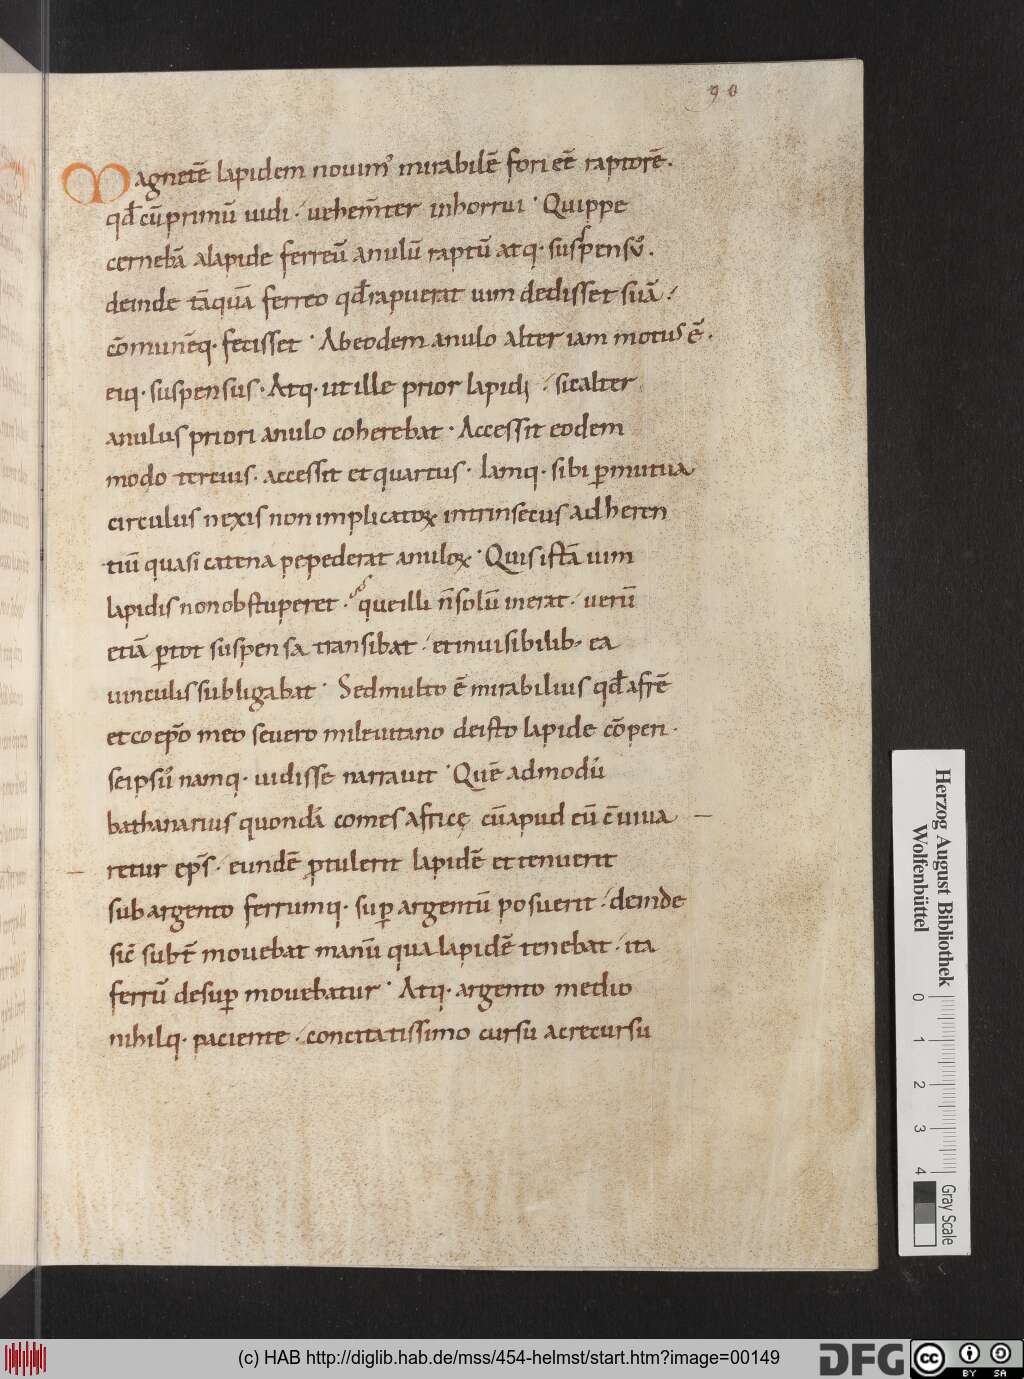 90
Magnetē lapidem nouim᾽ mirabilē fori eē raptorē.
qđ cūprimū uidi. uehem̄ter inhorrui. Quippe
cernebā alapide ferreū anulū raptū atq. suspensū.
deinde tāquā ferreo qđrapuerat uim dedisset suā.
cōmunēq. fecisset. Abeodem anulo alter iam motus ē.
eiq. suspensus. Atq. ut ille prior lapidi. sicalter
anulus priori anulo coherebat. Accessit eodem
modo tercius. accessit et quartus. Iamq. sibi ꝑmutua
circulus nexis non implicatoꝝ intrinsecus adheren
tiū quasi catena pepederat anuloꝝ. Quis istā uim
lapidis non obstuperet. que illi n̄solū inerat. uerū
etiā ꝑtot suspensa transibat. et inuisibilib; ea
uinculis subligabat. Sed multo ē mirabilius qđ afrē
et coep̄o meo seuero mileuitano de isto lapide cōperi.
seipsū namq. uidisse narrauit. Quē admodū
bathanarius quondā comes africę cū apud eū c̄uiua
retur ep̄s. eundē ꝓtulerit lapidē et tenuerit
sub argento ferrumq. suꝑ argentū posuerit. deinde
sic̄ subt̄ mouebat manū qua lapidē tenebat. ita
ferrū desuꝑ mouebatur. Atq. argento medio
nihilq. paciente. concitatissimo cursu ac recursu
Herzog August Bibliothek
Wolfenbüttel
0 1 2 3 4
Gray Scale
(c) HAB http://diglib.hab.de/mss/454-helmst/start.htm?image=00149
DFG
cc BY SA